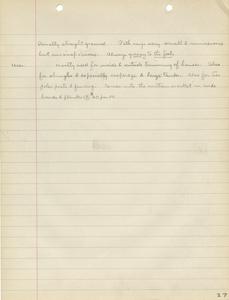 Usually straight grained. Pith rays very small & numerous
but inconspicuous. Always to the feel.
Uses. Mostly used for inside & outside trimming of houses. Also
for shingles & especially & large tanks. Also for
poles posts & fencing. Comes into the eastern market in wide
boards & planks @ $
27